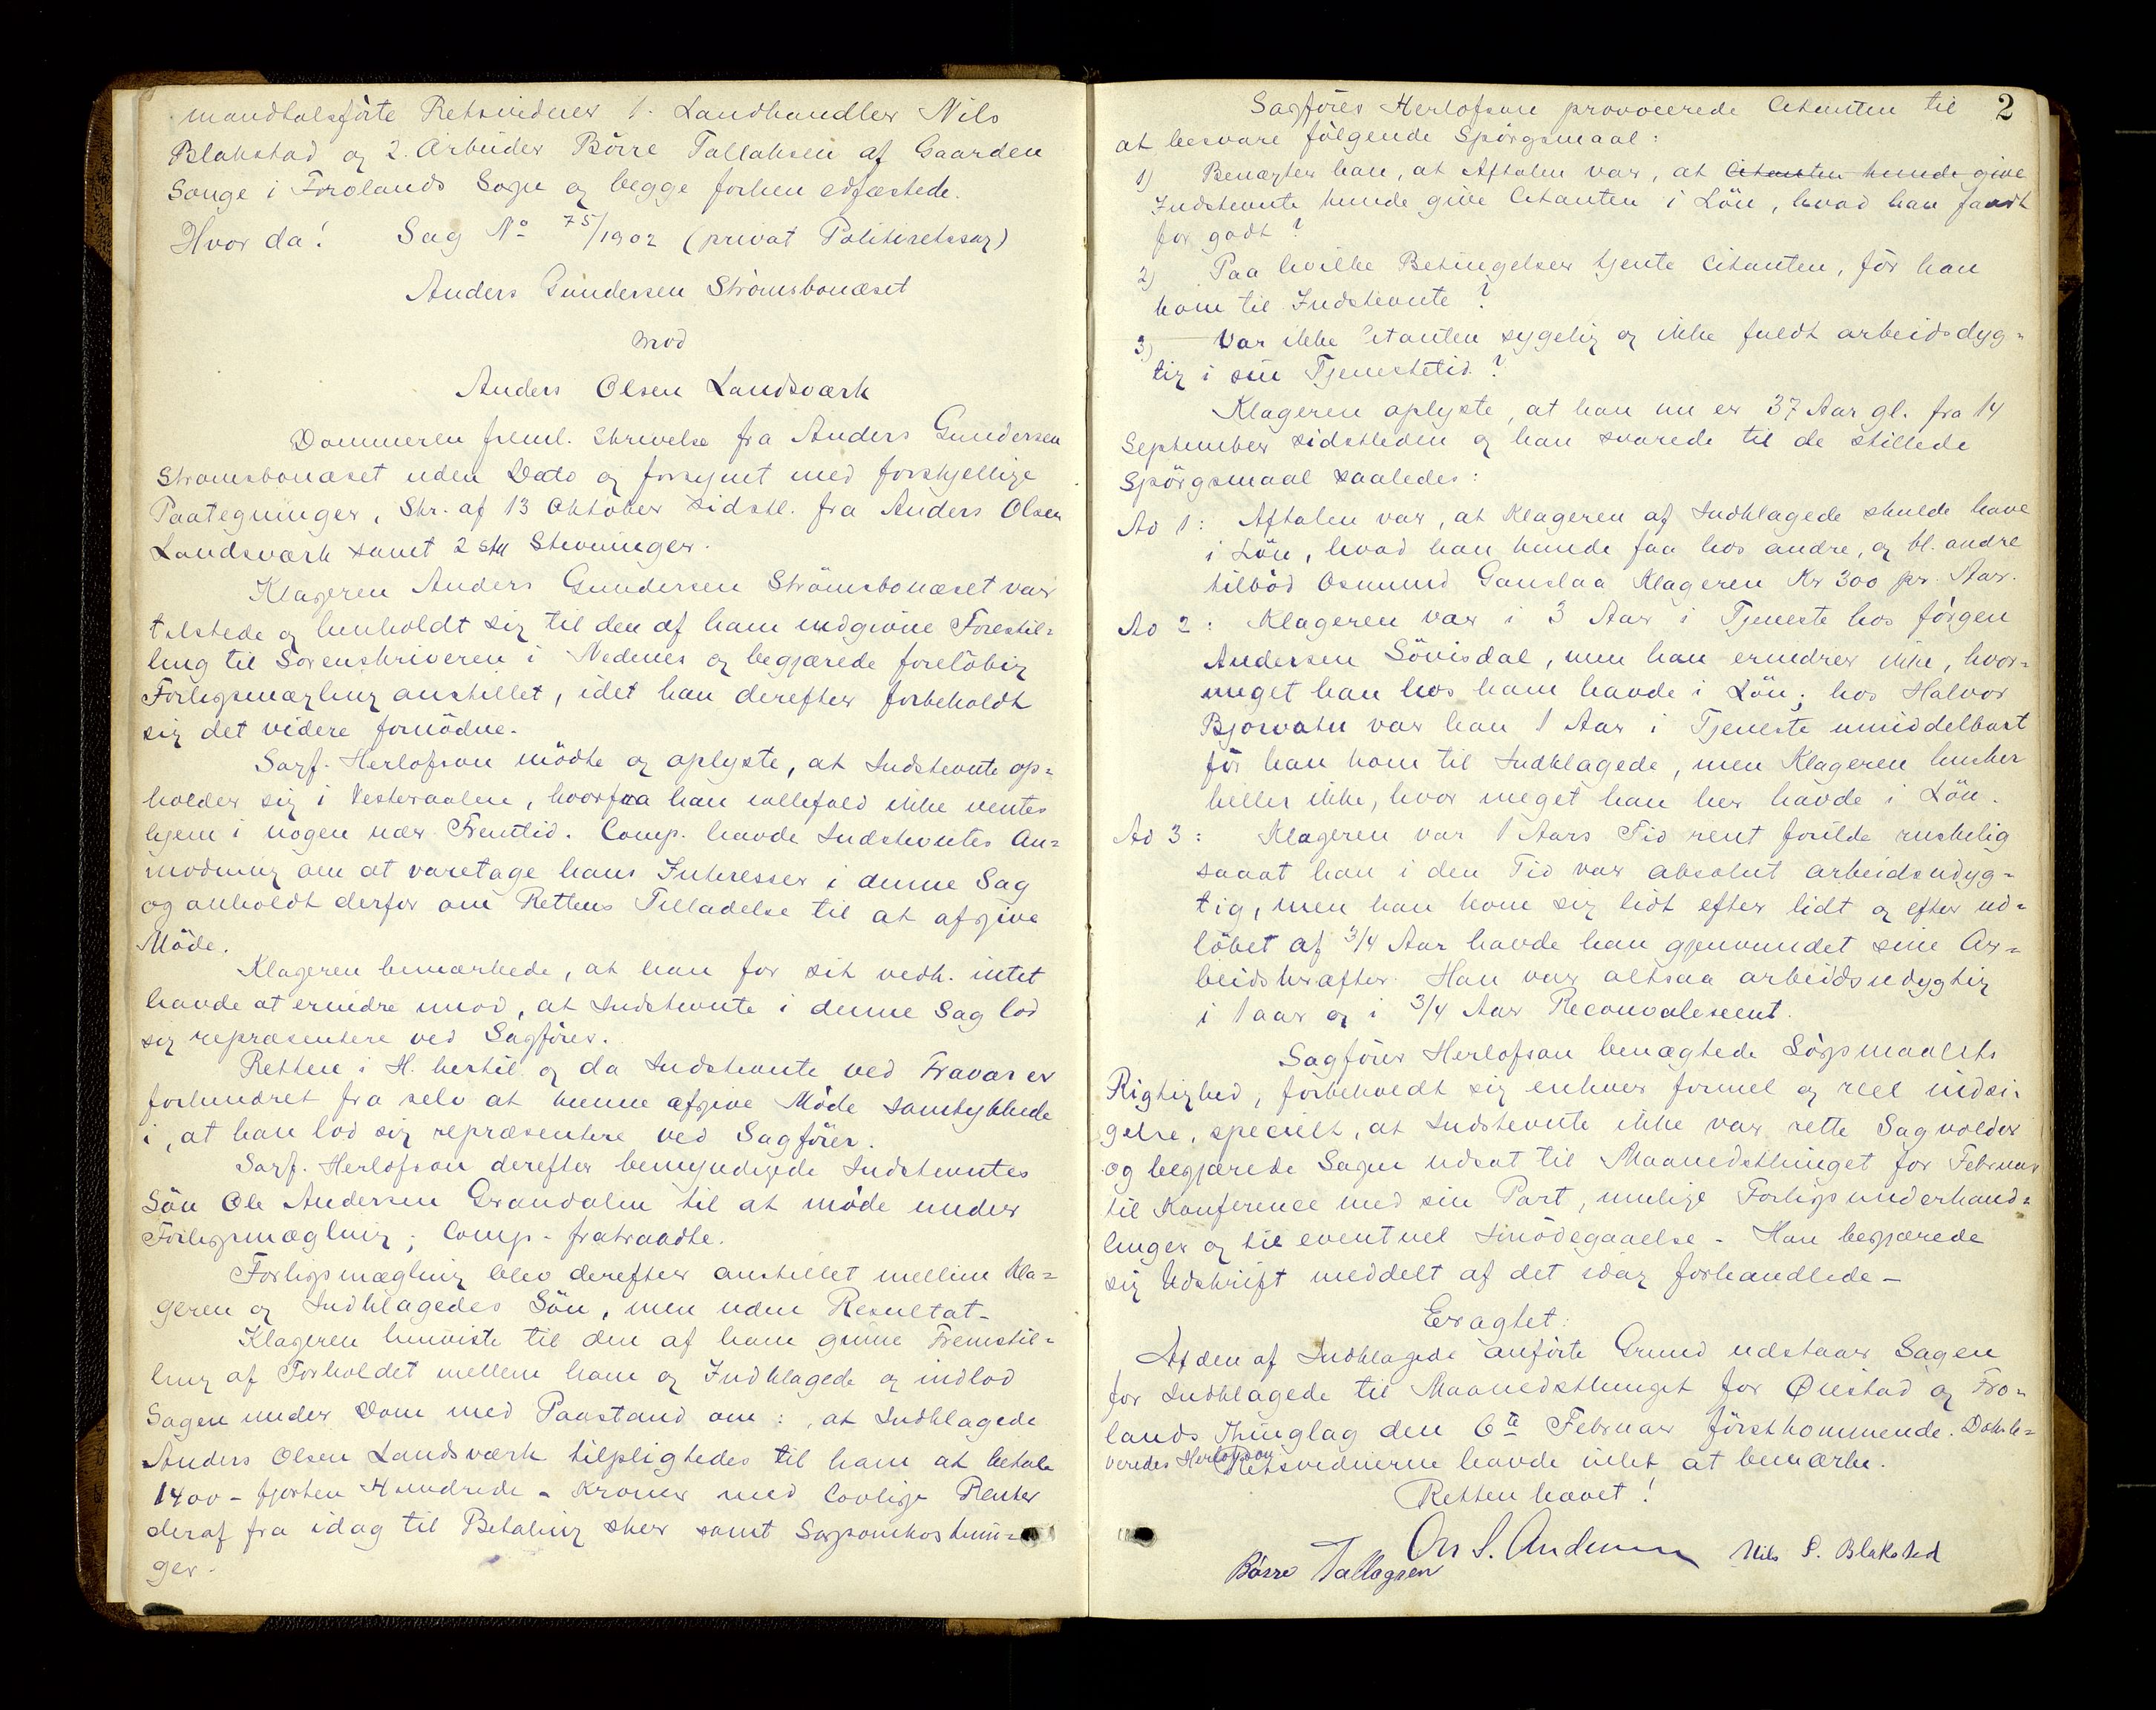 mandtalsførte Retsvidner 1. Landhandler Nils
Blakstad og 2. Arbeider Börre Tallaksen af Gaarden
Songe i Frolands Sogn og begge forhen edfæstede.
Hvor da! Sag No 75/1902 (privat Politiretssag)
Anders Gundersen Strømsbonæset
mod
Anders Olsen Landsværk
Dommeren freml. Skrivelse fra Anders Gundersen
Strømsbonæset uden Dato og forsynet med forskjellige
Paategninger, Skr. af 13 Oktober sidstl. fra Anders Olsen
Landsværk samt 2 stk Stevninger.
Klageren Anders Gundersen Strömsbonæset var
tilstede og henholdt sig til den af ham indgivne Forestil=
ling til Sorenskriveren i Nedenes og begjærede foreløbig
Forligsmægling anstillet, idet han derefter forbeholdt
sig det videre fornødne.
Sagf. Herlofson mödte og oplyste, at Indstevnte op=
holder sig i Vesteraalen, hvorfra han iallefald ikke ventes
hjem i nogen nær Fremtid. Comp. havde Indstevntes An=
modning om at varetage hans Interesser i denne Sag
og anholdt derfor om Rettens Tilladelse til at afgive
Möde.
Klageren bemærkede, at han for sit vedk. intet
havde at erindre imod, at Indstevnte i denne Sag lod
sig repræsentere ved Sagförer.
Retten i H. hertil og da Indstevnte ved Fravær er
forhindret fra selv at kunne afgive Möde samtykkede
i, at han lod sig repræsentere ved Sagförer.
Sagf. Herlofson derefter bemyndigede Indstevntes
Sön Ole Andersen Grandalen til at møde under
Forligsmægling; Comp. fratraadte.
Forligsmægling blev derefter anstillet mellem Kla=
geren og Indklagedes Sön, men uden Resultat.
Klageren henviste til den af ham givne Fremstil=
ling af Forholdet mellem ham og Indklagede og indlod
Sagen under Dom med Paastand om: at Indklagede
Anders Olsen Landsværk tilpligtedes til ham at betale
1400 - fjorten Hundrede - Kroner med lovlige Renter
deraf fra idag til Betaling sker samt Sagsomkostnin=
ger.
2
Sagförer Herlofson provocerede Citanten til
at besvare følgende Spörgsmaal:
1) Benægter han, at Aftalen var, at Citanten kunde give
Indstevnte kunde give Citanten i Lön, hvad han fandt
for godt?
2) Paa hvilke Betingelser tjente Citanten, för han
kom til Indstevnte?
3) Var ikke Citanten sygelig og ikke fuldt arbeidsdyg=
tig i sin Tjenestetid?
Klageren oplyste, at han nu er 37 Aar gl. fra 14
September sidstleden og han svarede til de stillede
Spörgsmaal saaledes:
Ad 1: Aftalen var, at Klageren af Indklagede skulde have
i Lön, hvad han kunde faa hos andre, og bl. andre
tilböd Osmund Gauslaa Klageren Kr 300 pr. Aar.
Ad 2: Klageren var i 3 Aar i Tjeneste hos Jørgen
Andersen Sövisdal, men han erindrer ikke, hvor=
meget han hos ham havde i Lön; hos Halvor
Bjorvatn var han 1 Aar i Tjeneste umiddelbart
för han kom til Indklagede, men Klageren husker
heller ikke, hvor meget han her havde i Lön.
Ad 3: Klageren var 1 Aars Tid rent forilde
saaat han i den Tid var absolut arbeidsudyg=
tig, men han kom sig lidt efter lidt og efter ud=
löbet af 3/4 Aar havde han gjenvundet sine Ar=
beidskræfter. Han var altsaa arbeidsudygtig
i 1 aar og i 3/4 Aar Reconvalescent.
Sagförer Herlofson benægtede Sögsmaalets
Rigtighed, forbeholdt sig enhver formel og reel indsi=
gelse, specielt, at Indstevnte ikke var rette Sagvolder
og begjærede Sagen udsat til Maanedsthinget for Februar
til Konference med sin Part, mulige Forligsunderhand=
linger og til eventuel Imödegaaelse. Han begjærede
sig Udskrift meddelt af det idag forhandlede -
Eragtet:
Af den af Indklagede anførte Grund udstaar Sagen
for Indklagede til Maanedsthinget for Øiestad og Fro=
lands Thinglag den 6te Februar förstkommende. Dok le=
veredes Herlofson
Retsvidnerne havde intet at bemærke.
Retten hævet!
On S. Andersen Nils S. Blakstad
Börre Tallagsen